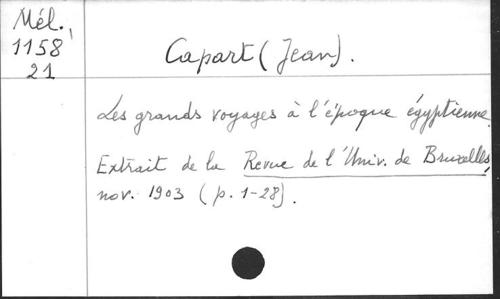 Mél.
1158
21
Capart (Jean).
Les grands voyages à l'époque égyptienne.
Extrait de la Revue de l'Univ. de Bruxelles,
nov. 1903 (p. 1-28).